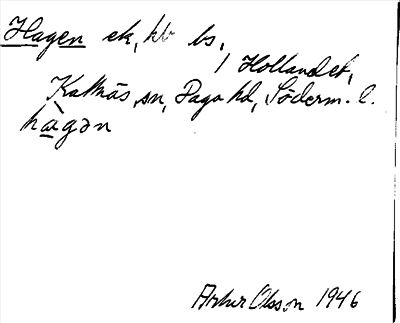 Hagen ek, hb bs,
/ Hollandet,
Kattnäs sn, Daga hd, Söderm. l.
hàgən
Arthur Olsson 1946